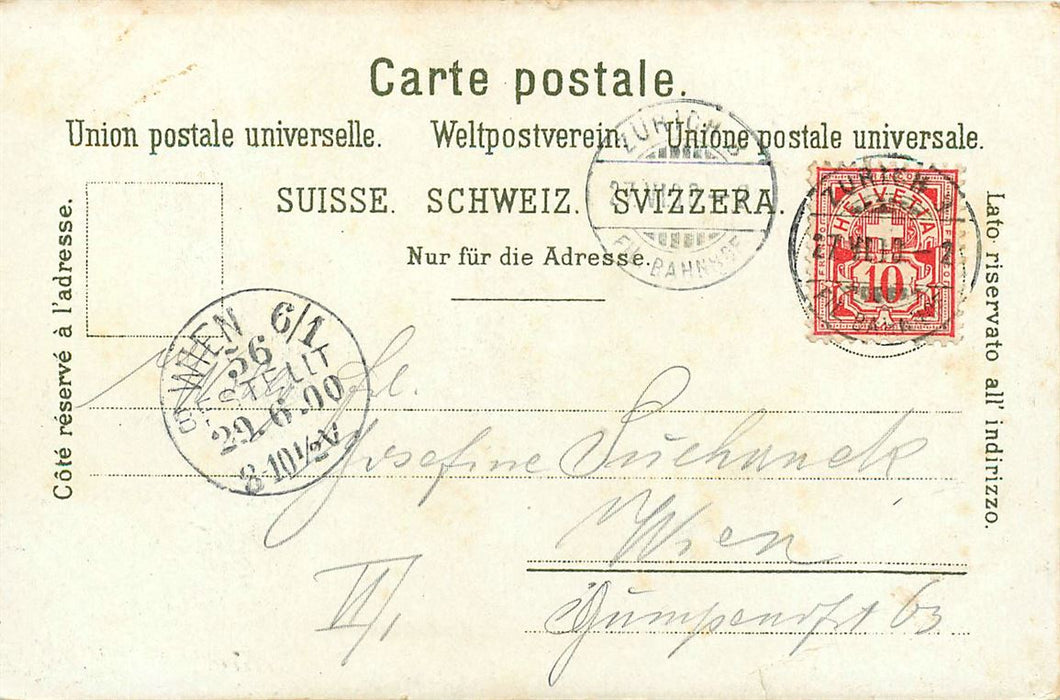 Carte postale.
Union postale universelle. Weltpostverein. Unione postale universale.
SUISSE. SCHWEIZ. SVIZZERA.
Nur für die Adresse.
Côté réservé à l'adresse.
Lato riservato all' indirizzo.
ZÜRICH
27 VI
FIL. BAHNHOF
ZÜRICH
27 VI
HELVETIA
FRANCO
10
WIEN 6/1
BESTELLT
29.6.00
8-10½V
Frl.
Josefine Suchanek
Wien
VI/1
Gumpendfst 63